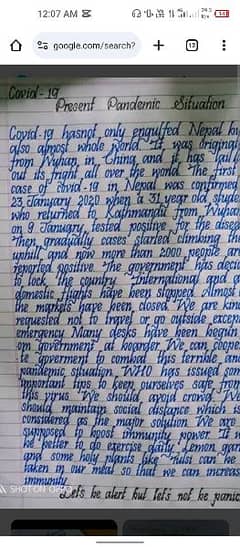 12:07 AM
google.com/search?
Covid-19
Present Pandemic Situation
Covid-19 has not only engulfed Nepal bu
also almost whole world. It was original
from Wuhan, in China and it has
out its fright all over the world. The first
case of covid-19 in Nepal was confirmed
23, January 2020 when a 31 year old stude
who returned to Kathmandu from Wuhan
on 9 January, tested positive for the disea
Then gradually cases started climbing the
uphill and now more than 2000 people ar
reported positive. The government has decid
to lock the country. International and a
domestic flights have been stopped. Almost
the markets have been closed. We are kin
requested not to travel or go outside excep
emergency. Many desks have been begun
government at boarder. We can coope
te goverment to combat this terrible and
pandemic situation. WHO has issued som
important tips to keep ourselves safe from
this virus. We should avoid crowd. We
should maintain social distance which is
considered as the major solution. We are
supposed to boost immunity power. It w
be better to do exercise daily. Lemon, gar
and some holy plants like Tulsi can be
taken in our meal so that we can increas
immunity.
Lets be alert but lets not be panic